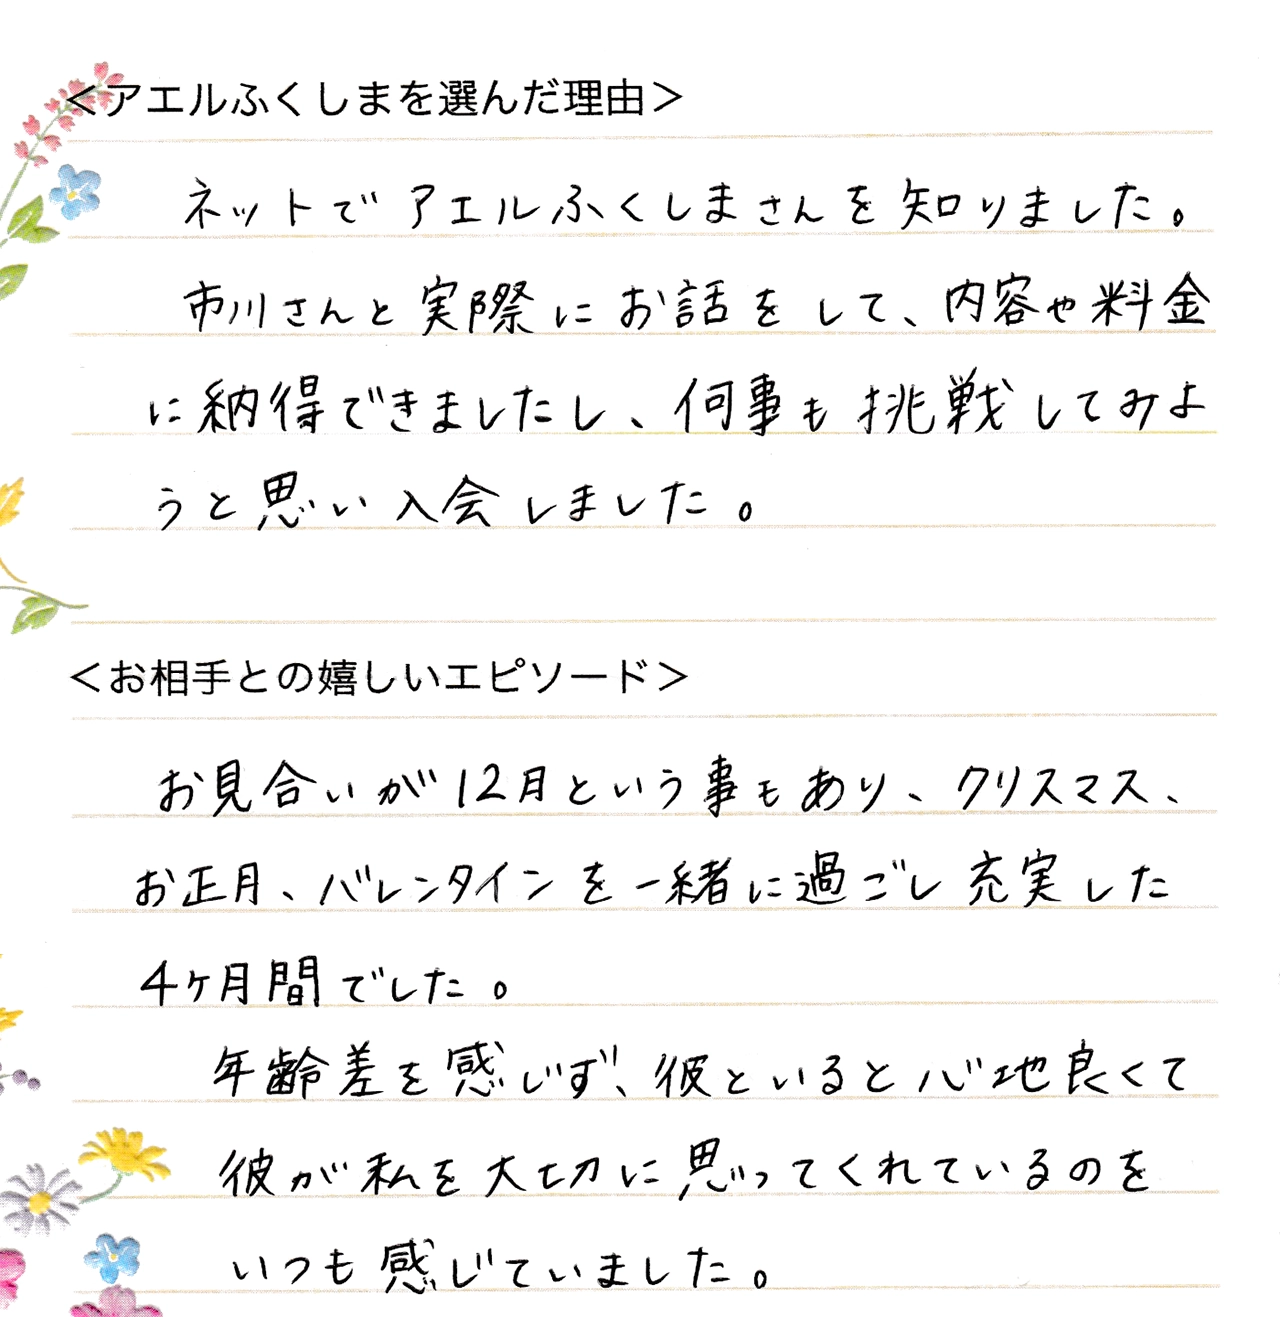 ＜アエルふくしまを選んだ理由＞
ネットでアエルふくしまさんを知りました。
市川さんと実際にお話をして、内容や料金
に納得できましたし、何事も挑戦してみよ
うと思い入会しました。
＜お相手との嬉しいエピソード＞
お見合いが12月という事もあり、クリスマス、
お正月、バレンタインを一緒に過ごし充実した
4ヶ月間でした。
年齢差を感じず、彼といると心地良くて
彼が私を大切に思ってくれているのを
いつも感じていました。